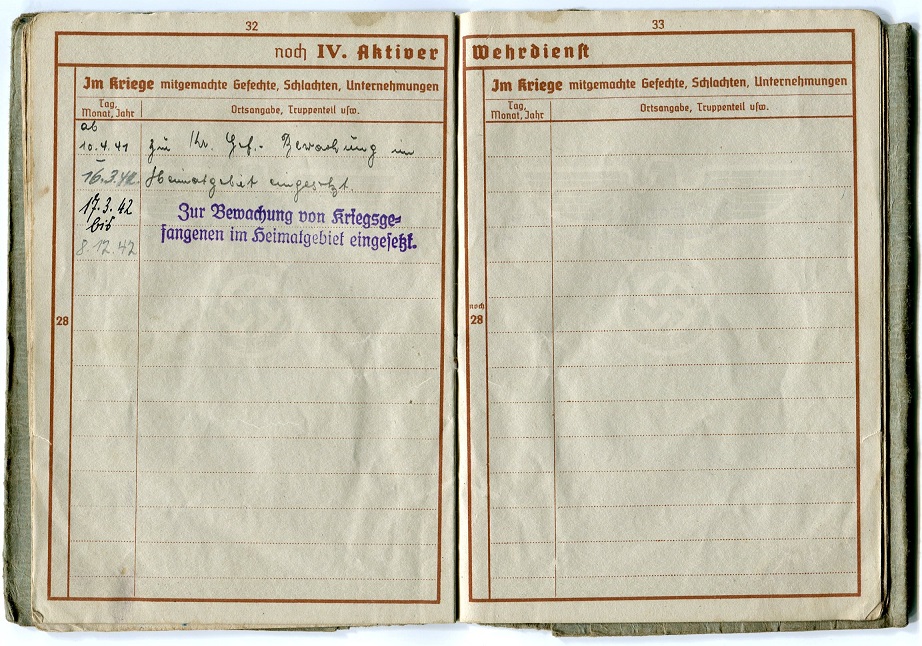 32
noch IV. Aktiver
Im Kriege mitgemachte Gefechte, Schlachten, Unternehmungen
Tag, Monat, Jahr
Ortsangabe, Truppenteil usw.
ab
10.4.41 zur Kr. Gef.- Bewachung im
– 16.3.42. Heimatgebiet eingesetzt.
17.3.42 Zur Bewachung von Kriegsge=
bis fangenen im Heimatgebiet eingesetzt.
8.12.42
28
33
Wehrdienst
Im Kriege mitgemachte Gefechte, Schlachten, Unternehmungen
Tag, Monat, Jahr
Ortsangabe, Truppenteil usw.
noch
28